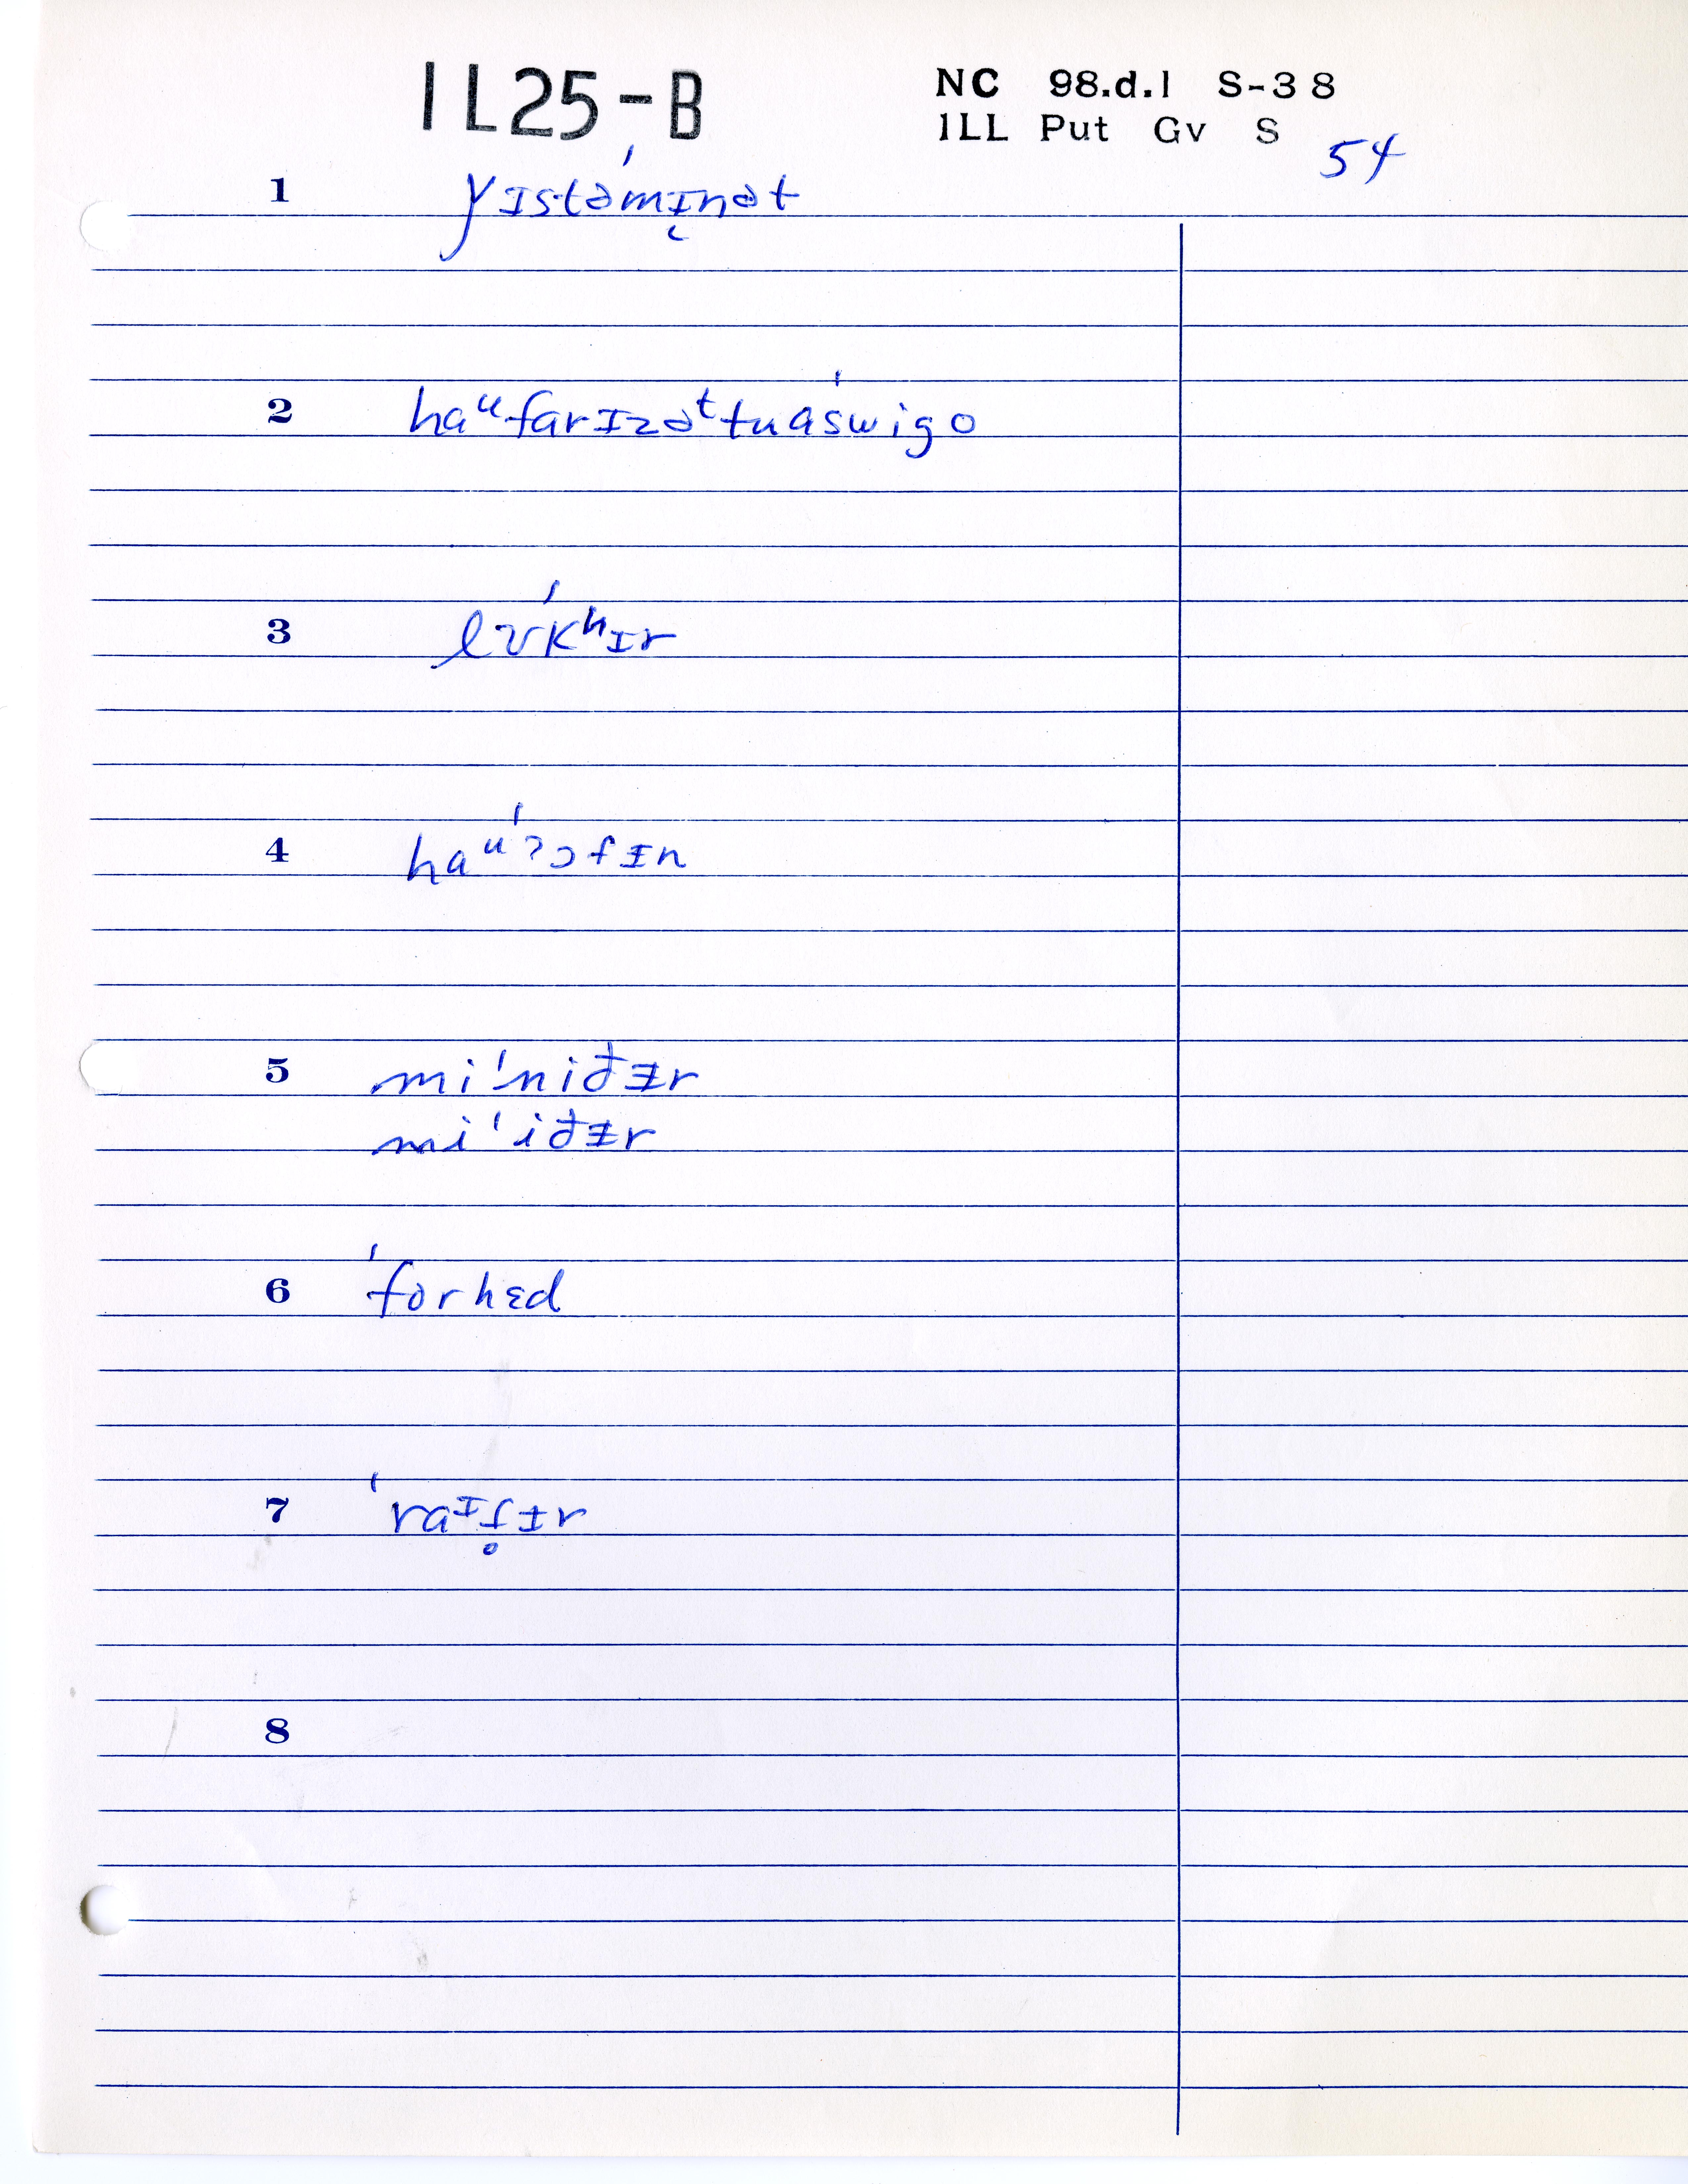 IL25-B
NC 98.d.1 S-38
ILL Put Gv S
54
1 yɪstəˈmɪ̨nət
2 haᵘfarɪzəᵗtuaˈswigo
3 lʊˈkʰɪr
4 haᵘˈʔɔfᵻn
5 miˈniðᵻr
miˈiðᵻr
6 ˈforhɛd
7 ˈraᶦf̥ᵻr
8